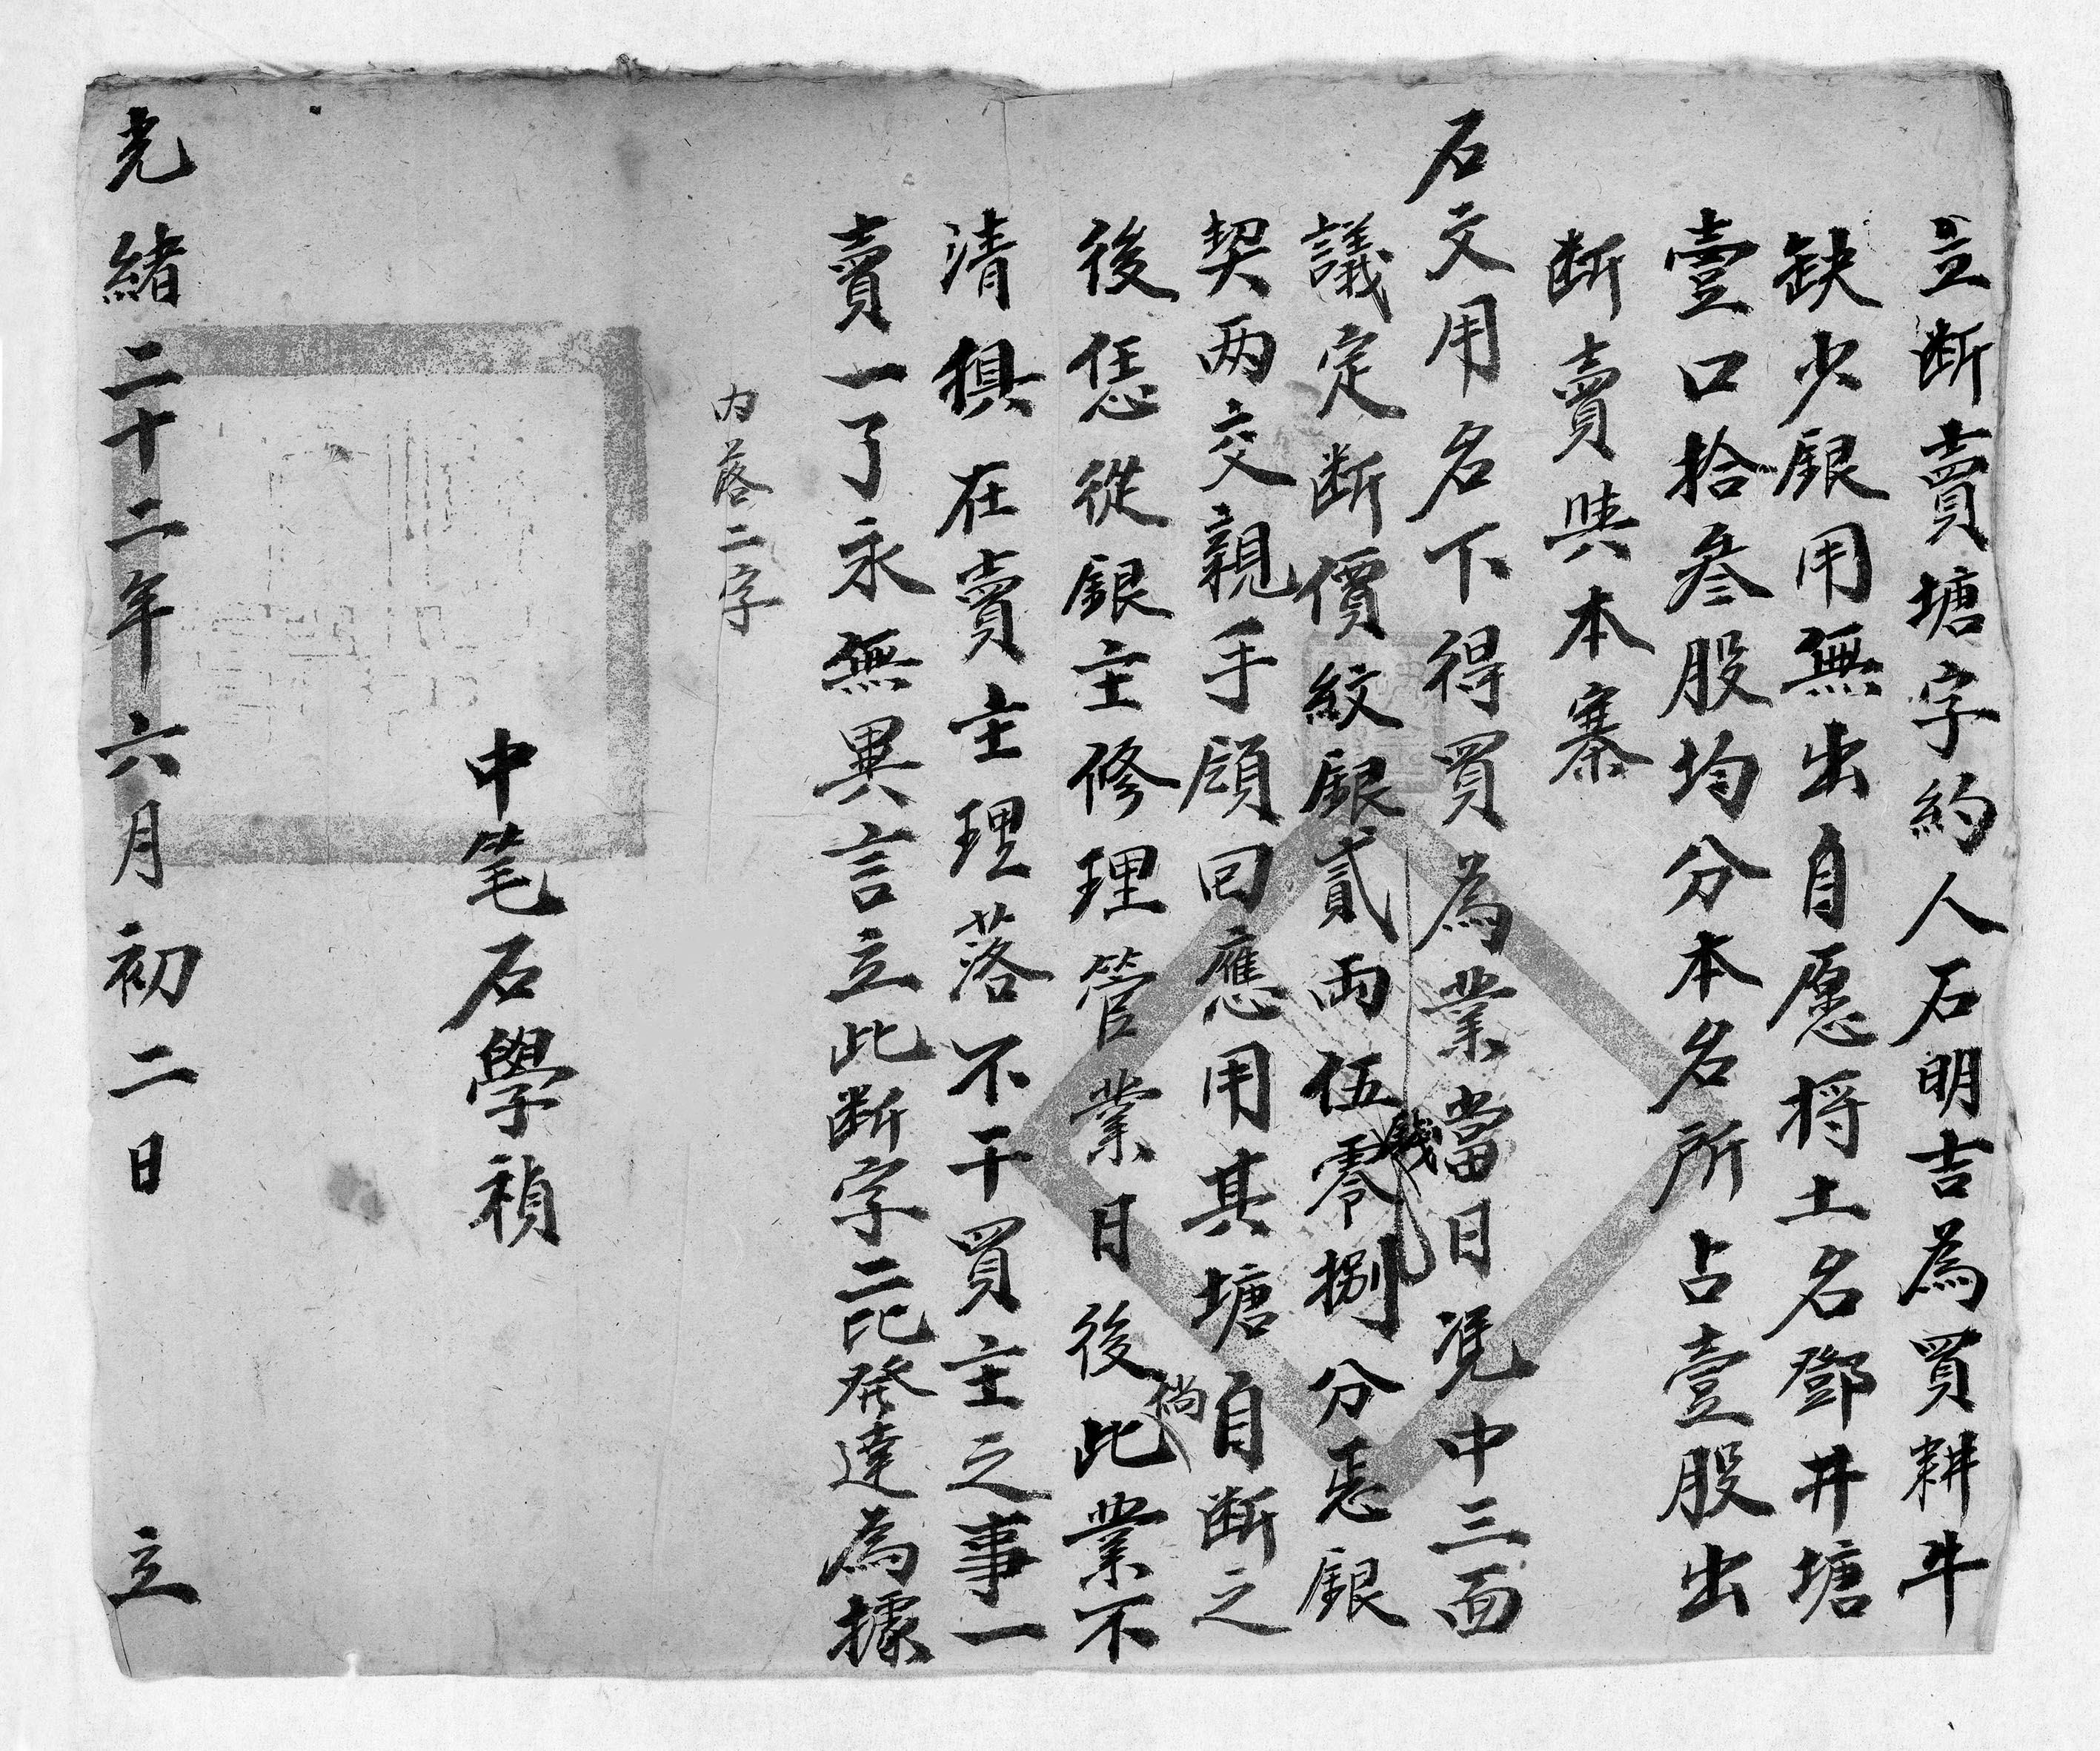 立断賣塘字約人石明吉為買耕牛
缺少銀用無出自愿将土名鄧井塘
壹口拾叁股均分本名所占壹股出
断賣與本寨
石交用名下得買為業當日凴中三面
議定断價紋銀貳兩伍錢零捌分惡銀
契两交親手領回應用其塘自断之
後恁從銀主修理管業日後倘此業不
清俱在賣主理落不干買主之事一
賣一了永無異言立此断字二比發達為據
内落二字
中笔石學禎
光緒二十二年六月初二日 立